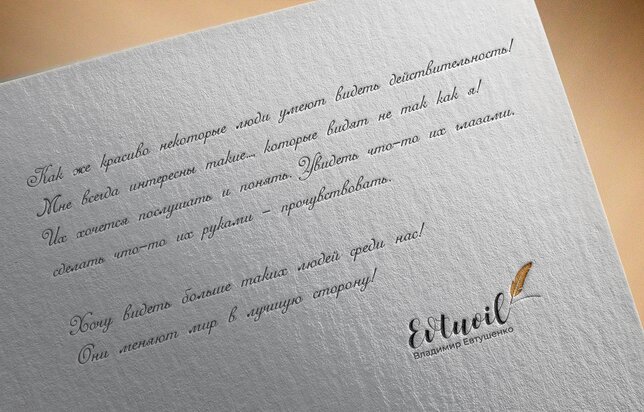 Как же красиво некоторые люди умеют видеть действительность!
Мне всегда интересны такие..., которые видят не так как я!
Их хочется послушать и понять. Увидеть что-то их глазами.
сделать что-то их руками – прочувствовать.
Хочу видеть больше таких людей среди нас!
Они меняют мир в лучшую сторону!
Evtuoil
Владимир Евтушенко